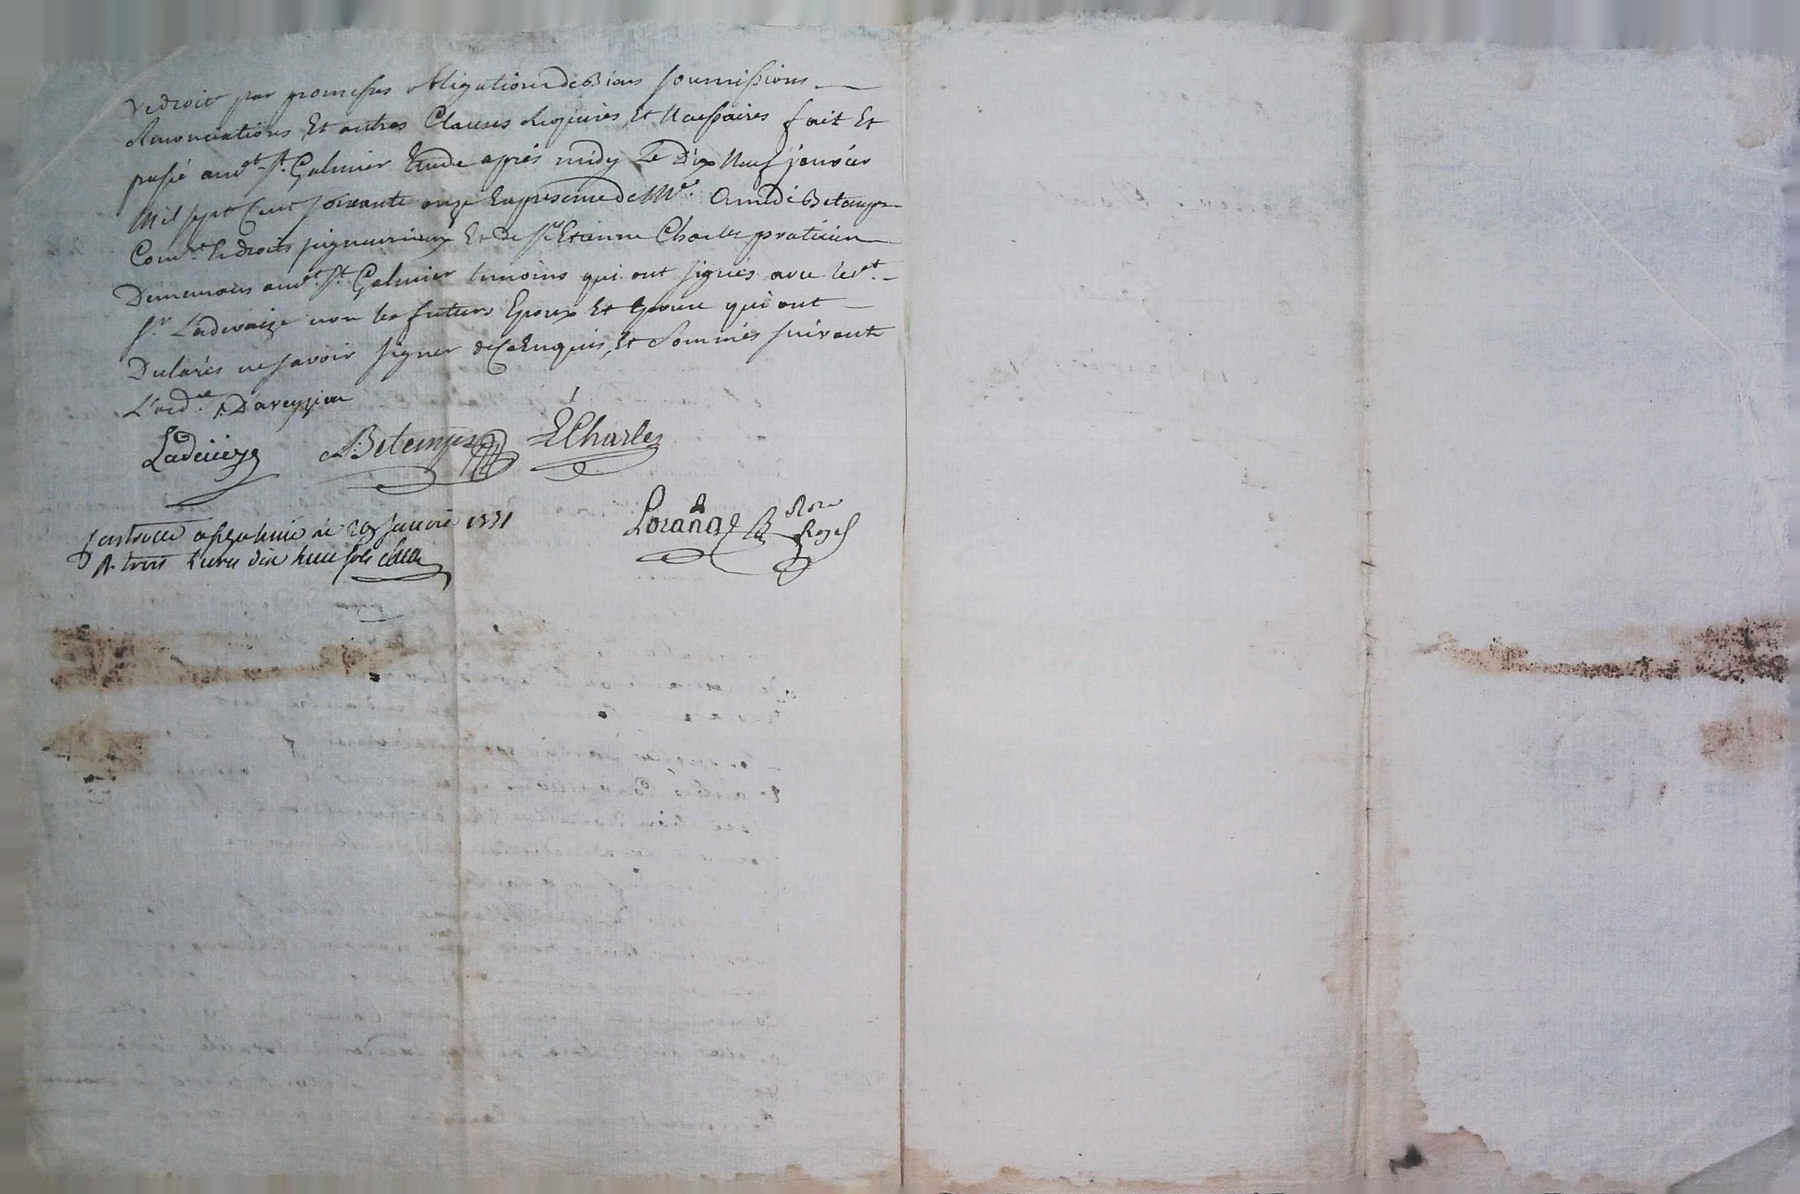 de droit par promesses obligation de Biens soumissions
Renonciations Et autres Clauses Requises Et Necessaires fait Et
passé aud.t S.t Galmier Etude après midy Le Dix Neuf janvier
Mil sept Cent soixante onze En presence de M.e Amedé Betemps
Com.re Es droits seigneuriaux Et de S.r Etienne Charles praticien
Demeurans aud.t S.t Galmier temoins qui ont signés avec led.t
S.r Ladeveze non les futurs Epoux Et Epouse qui ont
Declarés ne savoir signer de ce Enquis, Et Sommés suivant
L'ord.ce
Ladeveze A. Betemps E Charles
a St galmier le 29 Janvier 1771
R. trois Livres dix huit sols